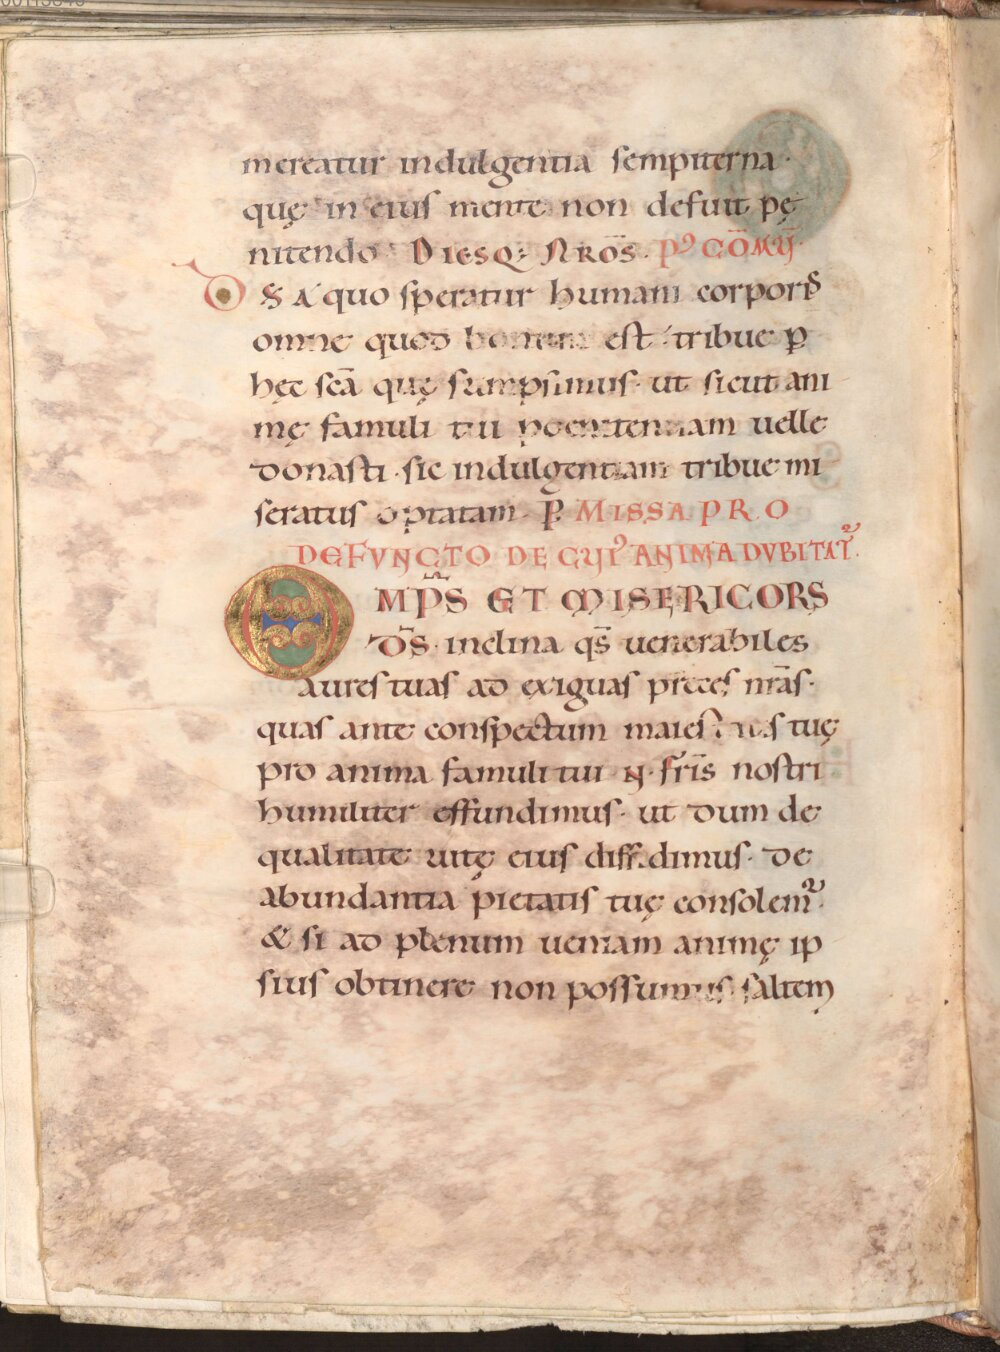 mereatur indulgentia sempiterna·
quę in eius mente non defuit pę
nitendo· Diesq; n̄rōs. P' CŌMṼ·
D̄S A quo speratur humani corporis
omne quod bonum est· tribue p̲
hęc sc̄a quę sumpsimus· ut sicut ani
mę famuli tui poenitentiam uelle
donasti· sic indulgentiam tribue mi
seratus optatam· P̲. MISSA PRO
DEFVNCTO DE CVI' ANIMA DVBITAT̄.
OMP̄S ET MISERICORS
D̄S· inclina qs̄ uenerabiles
aures tuas ad exiguas preces n̄ras·
quas ante conspectum maiestatis tuę
pro anima famuli tui N· fr̄is nostri
humiliter effundimus· ut dum de
qualitate uitę eius diffidimus· de
abundantia pietatis tuę consolem̄·
& si ad plenum ueniam animę ip
sius obtinere non possumus· saltem